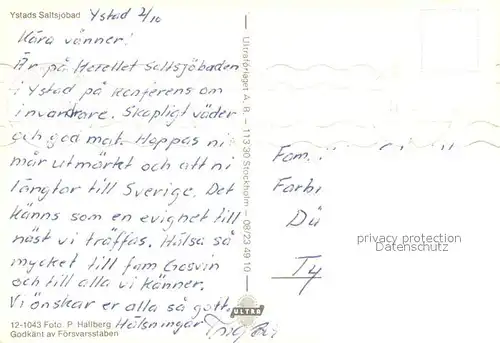 Ystads Saltsjöbad
Ystad 2/10
Kära vänner!
Är på Hotellet Saltsjöbaden
i Ystad på konferens om
invandrare. Skapligt väder
och god mat. Hoppas ni
mår utmärkt och att ni
längtar till Sverige. Det
känns som en evighet till
näst vi träffas. Hälsa så
mycket till fam
och till alla vi känner.
Vi önskar er alla så gott.
12-1043 Foto. P. Hallberg
Hälsningar
Godkänt av Försvarsstaben
Ultraförlaget A. B. – 113 30 Stockholm – 08/23 49 10
ULTRA
Fam.
Farb
Dü
Ty
privacy protection
Datenschutz